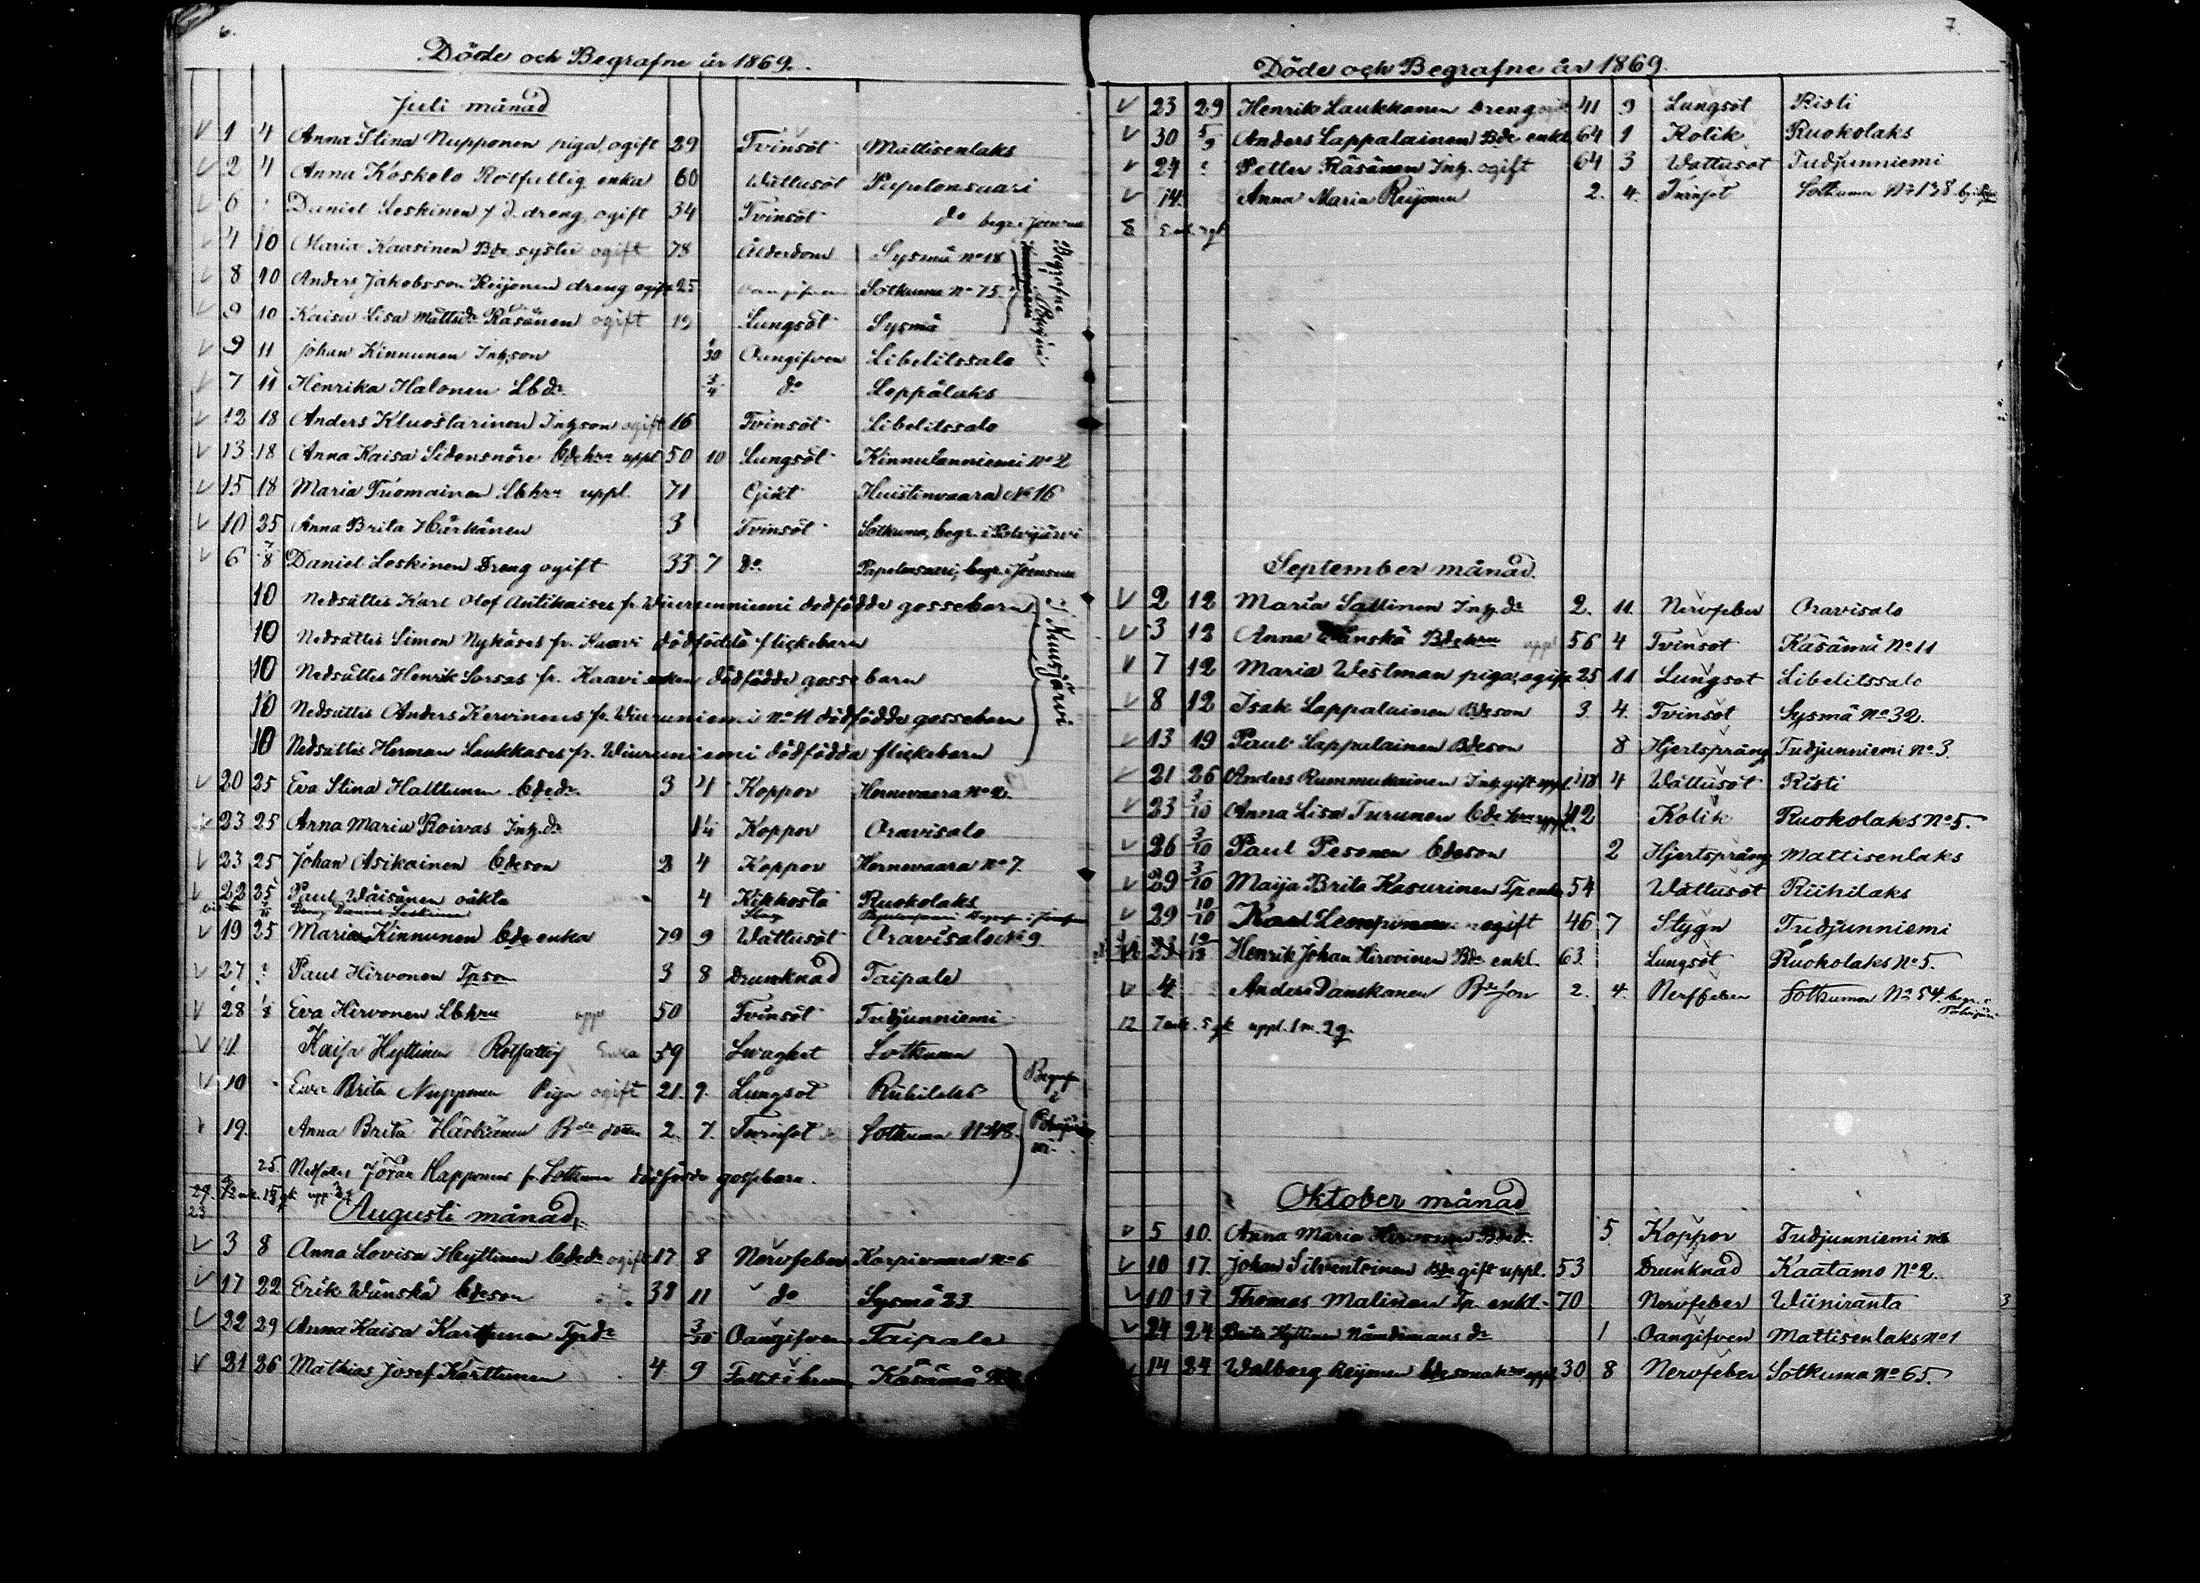 6.
Döde och Begrafne år 1869.
Juli månad
1 4 Anna Stina Nupponen piga ogift 29 Tvinsöt Mattisenlaks
2 4 Anna Koskelo Rotfattig enka 60 Wattusöt Papelonsaari
6 Daniel Leskinen f. d. dreng ogift 34 Tvinsöt do begr. i Joensuu
4 10 Maria Kaasinen Bde syster ogift 78 Ålderdom Sysmä No 18
8 10 Anders Jakobsson Reijonen dreng ogift 25 oangifven Sotkuma No 75.
9 10 Kaisa Lisa Mattsdr Räsänen ogift 19 Lungsöt Sysmä
Begrafne i
9 11 Johan Kinnunen Inh.son 1/30 Oangifven Libelitssalo
7 11 Henrika Halonen Lbdr 1/4 do Leppälaks
12 18 Anders Kluostarinen Inh.son ogift 16 Tvinsöt Libelitssalo
13 18 Anna Kaisa Sidensnöre Bdehru uppl 50 10 Lungsöt Kinnulanniemi No 2
15 18 Maria Tuomainen Lbhru uppl. 71 Gikt Huistinvaara No 16
10 25 Anna Brita Härkänen 3 Tvinsöt Sotkuma, begr. i Polvijärvi
6 7/8 Daniel Leskinen Dreng ogift 33 7 Do Papelonsaari, begr. i Joensuu
10 Nedsattes Karl Olof Antikaises fr. Wiurunniemi dödfödde gossebarn
10 Nedsattes Simon Nykäses fr. Kaavi dödfödda flickebarn
10 Nedsattes Henrik Sorsas fr. Kaavi dödfödde gossebarn
10 Nedsattes Anders Kervinens fr. Wiuruniemi No 11 dödfödde gossebarn
10 Nedsattes Herman Laukkases fr. Wiuruniemi dödfödda flickebarn
i Kuusjärvi
20 25 Eva Stina Halttunen Bdedr 3 4 Koppor Hornevaara No 2.
23 25 Anna Maria Roivas Inh.dr 1/4 Koppor Oravisalo
23 25 Johan Asikainen Bdeson 2 4 Koppor Hornevaara No 7.
22 25 Paul Wäisänen oäkta 4 Kikhosta Ruokolaks
19 25 Maria Kinnunen Bde enka 79 9 Wattusöt Oravisalo No 9
27 ? Paul Hirvonen Tpson 3 8 Drunknad Taipale
28 1/8 Eva Hirvonen Lbhru uppl 50 Tvinsöt Tudjunniemi
11 Kaisa Hyttinen Rotfattig Enka 59 Swaghet Sotkuma
10 Eva Brita Nupponen Piga ogift 21. 9. Lungsot Riihilaks
19. Anna Brita Häskänen Bde dotter 2. 7. Tvinsot Sotkuma No 48.
Begrafne i Polvijärvi
25 Nedsattes Jöran Happonens fr. Sotkuma dödfödde gossebarn.
Augusti månad
3 8 Anna Lovisa Heyttinen Bdedr ogift 17 8 Nervfeber Korpivaara No 6
17 22 Erik Wänskä Bdeson 38 11 do Sysmä 23
22 29 Anna Kaisa Karttunen Tprdr 3/30 Oangifven Taipale
21 26 Mathias Josef Karttunen 4 9 Fallet i brunn Käsämä No
7
Döde och Begrafne år 1869.
23 29 Henrik Laukkanen Dreng 41 9 Lungsöt Risti
30 5/9 Anders Lappalainen Bde enkl. 64 1 Kolik Ruokolaks
24 ? Petter Räsänen Inh. ogift 64 3 Wattusot Tudjunniemi
14. Anna Maria Reijonen 2. 4. Tvinsot Sotkuma No 138
8
September månad.
2 12 Maria Sallinen Inh.dr 2. 11. Nervfeber Oravisalo
3 12 Anna Wänskä Bdehru uppl 56 4 Tvinsot Käsämä No 11
7 12 Maria Westman piga, ogift 25 11 Lungsot Libelitssalo
8 12 Isak Lappalainen Bdeson 3 4. Tvinsöt Sysmä No 32.
13 19 Paul Lappalainen Bdeson 8 Hjertsprång Tudjunniemi No 3
21 26 Anders Rummukainen Inh. gift uppl. 48 4 Wattusöt Risti
23 3/10 Anna Lisa Turunen Bde hru uppl. 42 Kolik Ruokolaks No 5.
26 3/10 Paul Pesonen Bdeson 2 Hjertsprång Mattisenlaks
29 3/10 Maija Brita Kasurinen Tp enka 54 Wattusot Riihilaks
29 10/10 Karl Lempinen ogift 46 7 Stygn Tudjunniemi
23 Henrik Johan Hirvoinen Bde enkl. 63 Lungsöt Ruokolaks No 5.
4. Anders Danskanen Bde son 2. 4. Nervfeber Sotkuma No 54. begr. i Polvijärvi
12 7 mk. 5 qk uppl. 1 m. 2 q.
Oktober månad
5 10. Anna Maria Hirvonen Bdedr 5 Koppor Tudjunniemi
10 17. Johan Silventoinen Bde gift uppl. 53 Drunknad Kaatamo No 2.
10 17 Thomas Malinen Tp. enkl. 70 Nervfeber Wiiniranta
24 24 Brita Hyttinen Nämdemans dr 1 Oangifven Mattisenlaks No 1
14 24 Walborg Reijonen Bdesonahru uppl 30 8 Nervfeber Sotkuma No 65.